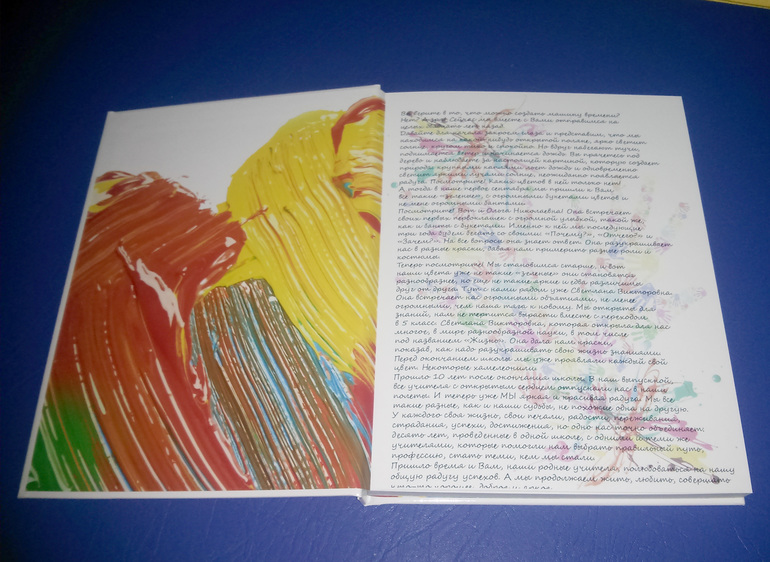 Вы верите в то, что можно создать машину времени?
Нет? А зря. Сейчас мы вместе с Вами отправимся на
целых двадцать лет назад.
Давайте для начала закроем глаза и представим, что мы
находимся на какой-нибудь открытой поляне, ярко светит
солнце, вокруг тихо и спокойно. Но вдруг набегают тучи,
поднимается ветер, начинается дождь. Вы прячетесь под
дерево и наблюдаете за настоящей картиной, которую создает
природа: крупными каплями идет дождь и одновременно
светит яркими лучами солнце, неожиданно появляется
радуга. Посмотрите! Каких цветов в ней только нет!
А тогда в наше первое сентября мы пришли к Вам
все такие «зеленые», с огромными букетами цветов и
не менее огромными бантами.
Посмотрите! Вот и Ольга Николаевна! Она встречает
своих первых первоклашек с огромной улыбкой, такой же,
как и банты с букетами. Именно к ней мы последующие
три года будем бегать со своими «Почему?», «Отчего?» и
«Зачем?». На все вопросы она знает ответ. Она разукрашивает
нас в разные краски, давая нам примерить разные роли и
костюмы.
Теперь посмотрите! Мы становимся старше, и вот
наши цвета уже не такие «зеленые» они становятся
разнообразнее, но еще не такие яркие и едва различимы
друг от друга. Тут с нами рядом уже Светлана Викторовна.
Она встречает нас огромными объятиями, не менее
огромными, чем наша тяга к новому. Мы открыты для
знаний, нам не терпится вырасти вместе с переходом
в 5 класс. Светлана Викторовна, которая открыла для нас
многое, в мире разнообразной науки, в том числе
под названием «Жизнь». Она дала нам краски,
показав, как надо разукрашивать свою жизнь знаниями.
Перед окончанием школы мы уже проявляли каждый свой
цвет. Некоторые хамелеонили.
Прошло 10 лет после окончания школы. В наш выпускной,
все учителя с открытым сердцем отпускали нас в наши
полеты. И теперь уже МЫ яркая и красивая радуга! Мы все
такие разные, как и наши судьбы, не похожие одна на другую.
У каждого своя жизнь, свои печали, радости, переживания,
страдания, успехи, достижения, но одно нас точно объединяет:
десять лет, проведенные в одной школе, с одними и теми же
учителями, которые помогли нам выбрать правильный путь,
профессию, стать теми, кем мы стали.
Пришло время и Вам, наши родные учителя, полюбоваться на нашу
общую радугу успехов. А мы продолжаем жить, любить, совершать